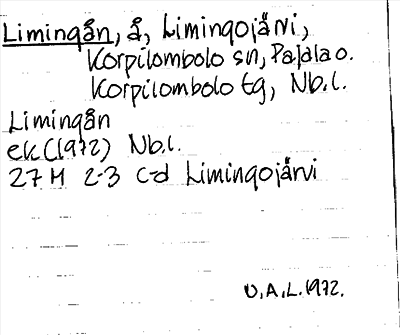 Limingån, å, Limingojärvi,
Korpilombolo sn, Pajala o.
Korpilombolo tg, Nb.l.
Limingån
ek (1972) Nb.l.
27 M 2-3 c-d Limingojärvi
O.A.L. 1972.